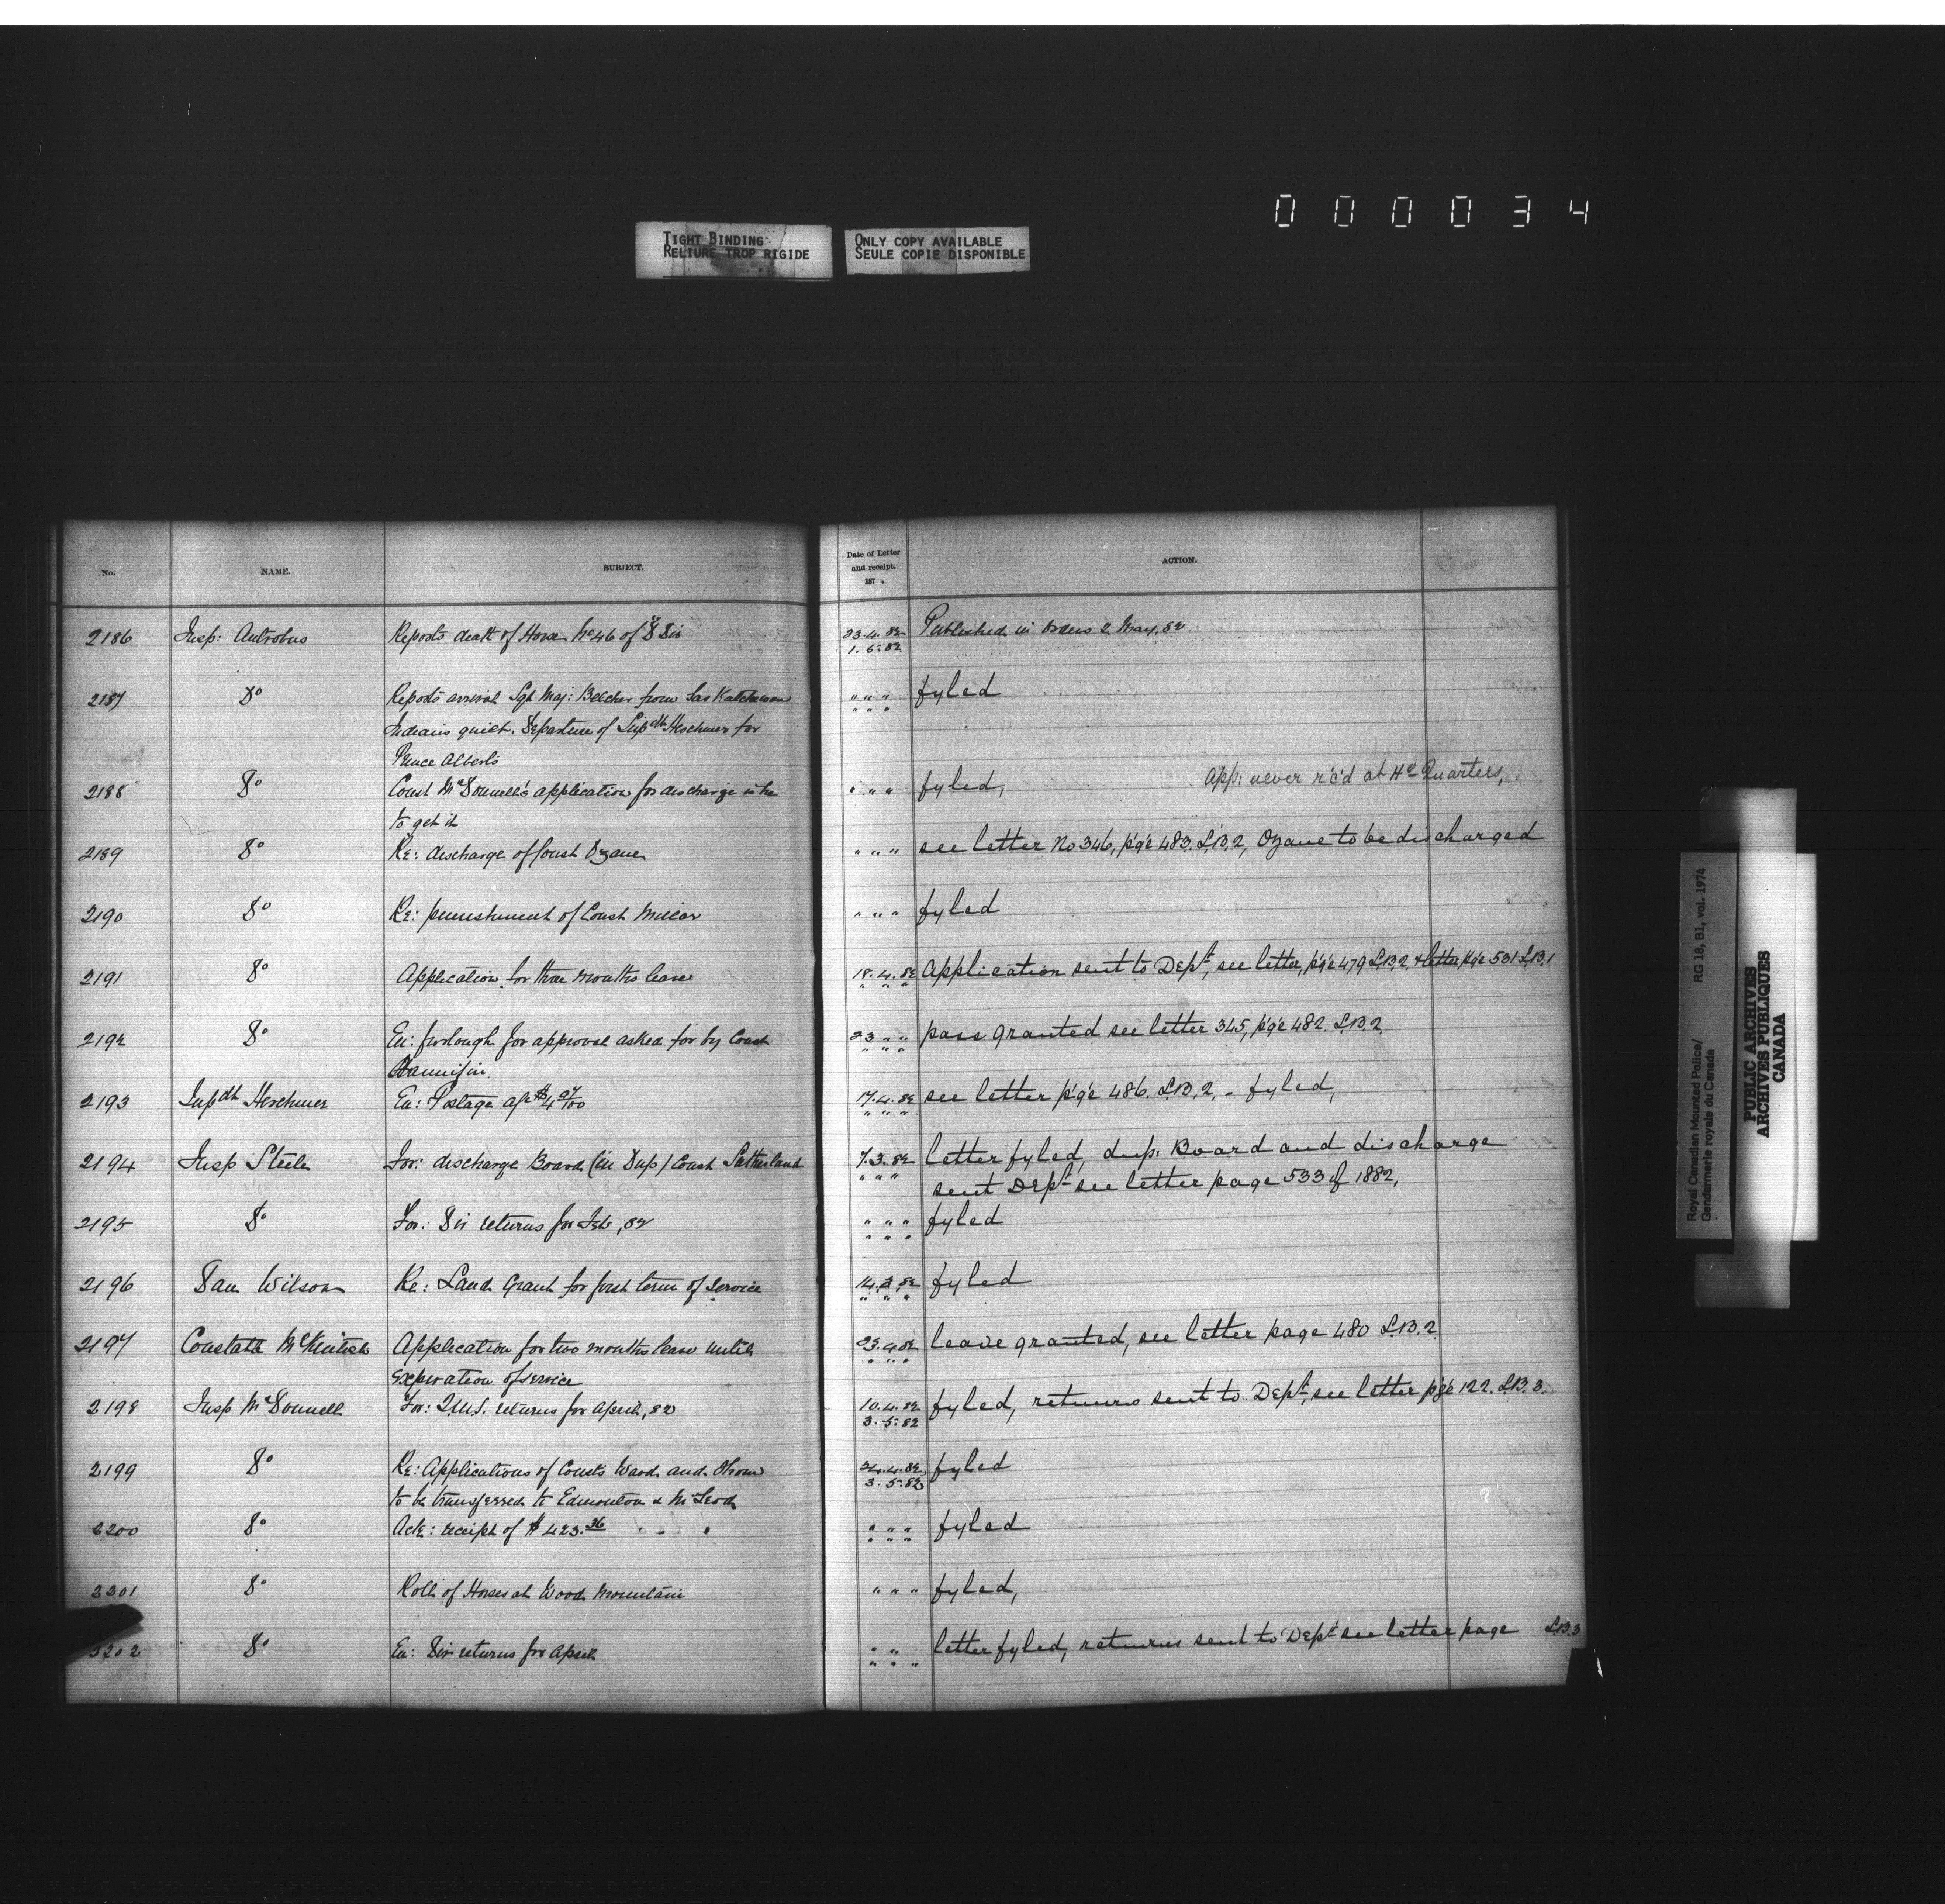 0 0 0 0 3 4
TIGHT BINDING
RELIURE TROP RIGIDE
ONLY COPY AVAILABLE
SEULE COPIE DISPONIBLE
No. NAME. SUBJECT. Date of Letter and receipt. 187 ACTION.
2186 Insp: Antrobus Reports death of Horse No 46 of "D" Div 23.4.82 Published in Orders 2 May, 82
1.5.82
2187 Do Reports arrival Sgt Maj: Belcher from Saskatchewan " " " fyled
Indians quiet. Departure of Supdt Herchmer for " " "
Prince Alberts
2188 Do Const McDonnell's application for discharge is he " " " fyled, App: never r'c'd at Hd Quarters,
to get it
2189 Do Re: discharge of Const Ozane " " " see letter No 346, p'g'e 483. L.B.2, Ozane to be discharged
2190 Do Re: punishment of Const " " " fyled
2191 Do Application for three months leave 18.4.82 Application sent to Dept, see letter, p'g'e 479 L.B.2, & letter p'g'e 531 L.B.1
" " "
2192 Do En: furlough for approval asked for by Const 23 " " pass granted see letter 345, p'g'e 482. L.B.2.
Hannifin. " " "
2193 Supdt Herchmer En: Postage a/c 17.4.82 see letter p'g'e 486. L.B.2, - fyled,
" " "
2194 Insp Steele For: discharge Board (in Dup) Const Sutherland 7.3.82 letter fyled, dup: Board and discharge
" " " sent Dept see letter page 533 of 1882,
2195 Do For: Div returns for Feb, 82 " " " fyled
" " "
2196 Dan Wilson Re: Land Grant for first term of service 14.3.82 fyled
" " "
2197 Constable McKintosh Application for two months leave until 23.4.82 leave granted, see letter page 480 L.B.2.
expiration of service " " "
2198 Insp McDonnell For: Q.M.S. returns for April, 82 10.4.82 fyled, returns sent to Dept, see letter p'g'e 122. L.B.3.
3.5.82
2199 Do Re: Applications of Consts Wood and 24.4.82 fyled
to be transferred to Edmonton & McLeod 3.5.82
2200 Do Ack: receipt of $423.36 " " " fyled
" " "
2201 Do Roll of Horses at Wood Mountain " " " fyled,
2202 Do En: Div returns for April " " letter fyled, returns sent to Dept see letter page L.B.3
" " "
Royal Canadian Mounted Police/
Gendarmerie royale du Canada
RG 18, B1, vol. 1974
PUBLIC ARCHIVES
ARCHIVES PUBLIQUES
CANADA